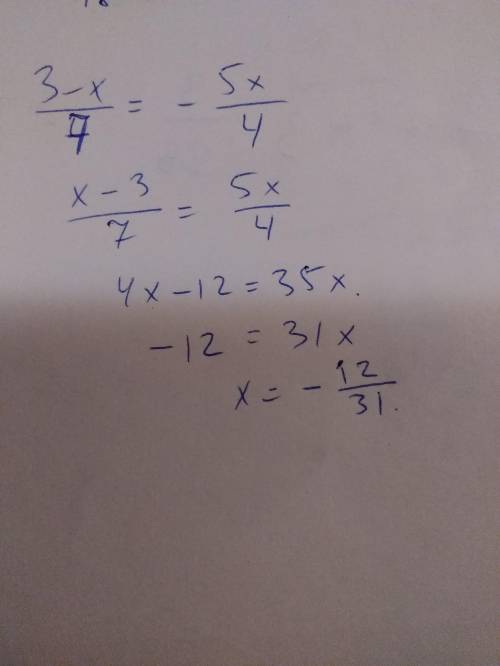 3-x/7 = - 5x/4
x-3/7 = 5x/4
4x-12=35x.
-12 = 31x
x= - 12/31.